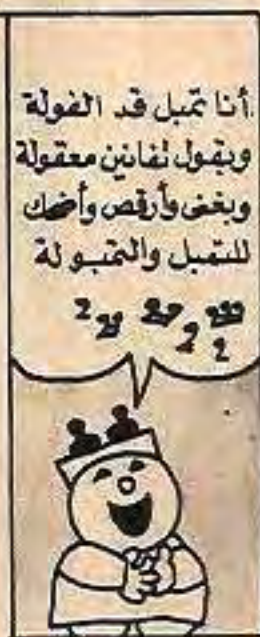 أنا تمبل قد الفولة
وبقول لفانين معقولة
وبغنى وأرقص وأضحك
للتمبل والتمبولة
ههه ههه هه